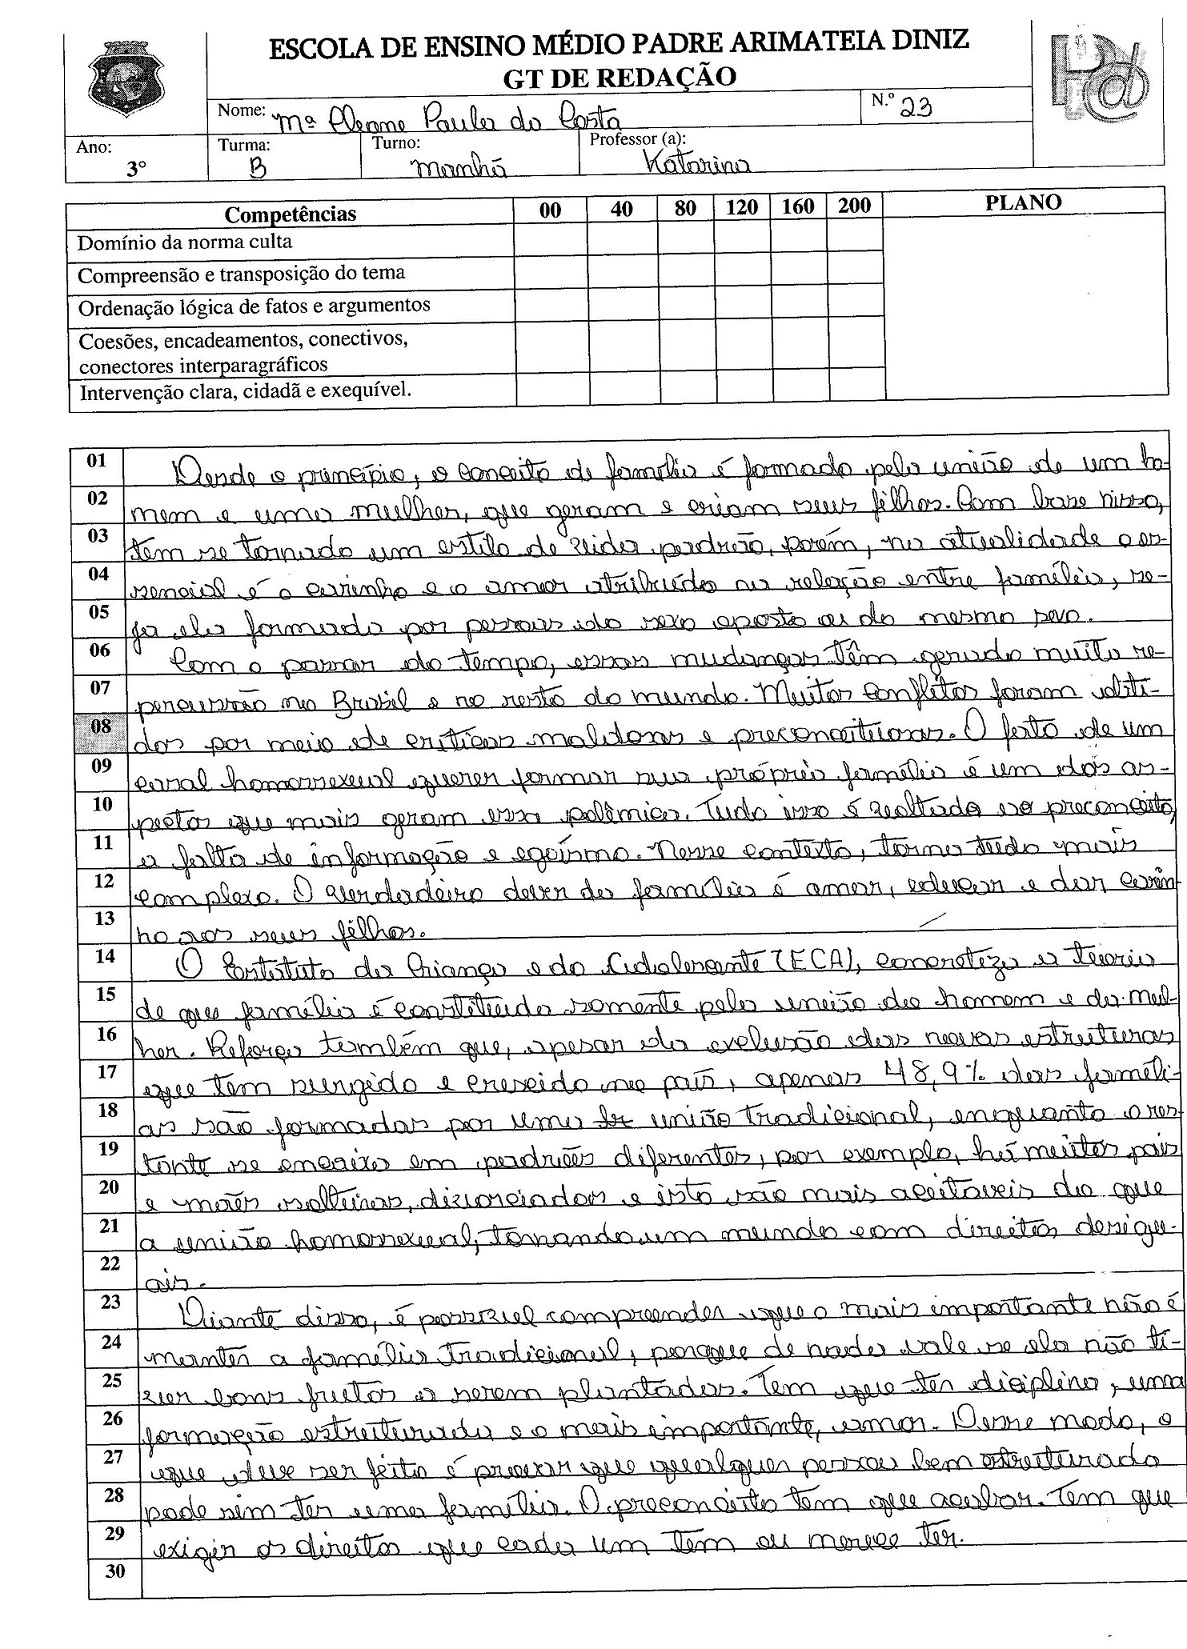 ESCOLA DE ENSINO MÉDIO PADRE ARIMATEIA DINIZ
GT DE REDAÇÃO
Nome: Mª Cleane Paula da Costa N.º 23
Ano: 3° Turma: B Turno: Manhã Professor (a): Katarina
Competências 00 40 80 120 160 200 PLANO
Domínio da norma culta
Compreensão e transposição do tema
Ordenação lógica de fatos e argumentos
Coesões, encadeamentos, conectivos,
conectores interparagráficos
Intervenção clara, cidadã e exequível.
01 Desde o princípio, o conceito de família é formado pela união de um ho-
02 mem e uma mulher, que geram e criam seus filhos. Com base nisso,
03 tem se tornado um estilo de vida padrão, porém, na atualidade o es-
04 sencial é o carinho e o amor atribuído na relação entre família, se-
05 ja ela formada por pessoas do sexo oposto ou do mesmo sexo.
06 Com o passar do tempo, essas mudanças têm gerado muita re-
07 percussão no Brasil e no resto do mundo. Muitos conflitos foram obti-
08 dos por meio de críticas maldosas e preconceituosas. O fato de um
09 casal homossexual querer formar sua própria família é um dos as-
10 pectos que mais geram essa polêmica. Tudo isso é voltado ao preconceito,
11 a falta de informação e egoísmo. Nesse contexto, torna tudo mais
12 complexo. O verdadeiro dever da família é amar, educar e dar carin
13 ho aos seus filhos.
14 O Estatuto da Criança e do Adolescente (ECA), concretiza a teoria
15 de que família é constituída somente pela união do homem e da mul-
16 her. Reforça também que, apesar da exclusão das novas estruturas
17 que tem surgido e crescido no país, apenas 48,9% das famíli-
18 as são formadas por uma união tradicional, enquanto o res-
19 tante se encaixa em padrões diferentes, por exemplo, há muitos pais
20 e mães solteiros, divorciados e isto são mais aceitaveis do que
21 a união homossexual, tornando um mundo com direitos desigu-
22 ais.
23 Diante disso, é possível compreender que o mais importante não é
24 manter a família tradicional, porque de nada vale se ela não ti-
25 ver bons frutos a serem plantados. Tem que ter disciplina, uma
26 formação estruturada e o mais importante, amor. Desse modo, o
27 que deve ser feito é provar que qualquer pessoa bem estruturada
28 pode sim ter uma família. O preconceito tem que acabar. Tem que
29 exigir os direitos que cada um tem ou merece ter.
30